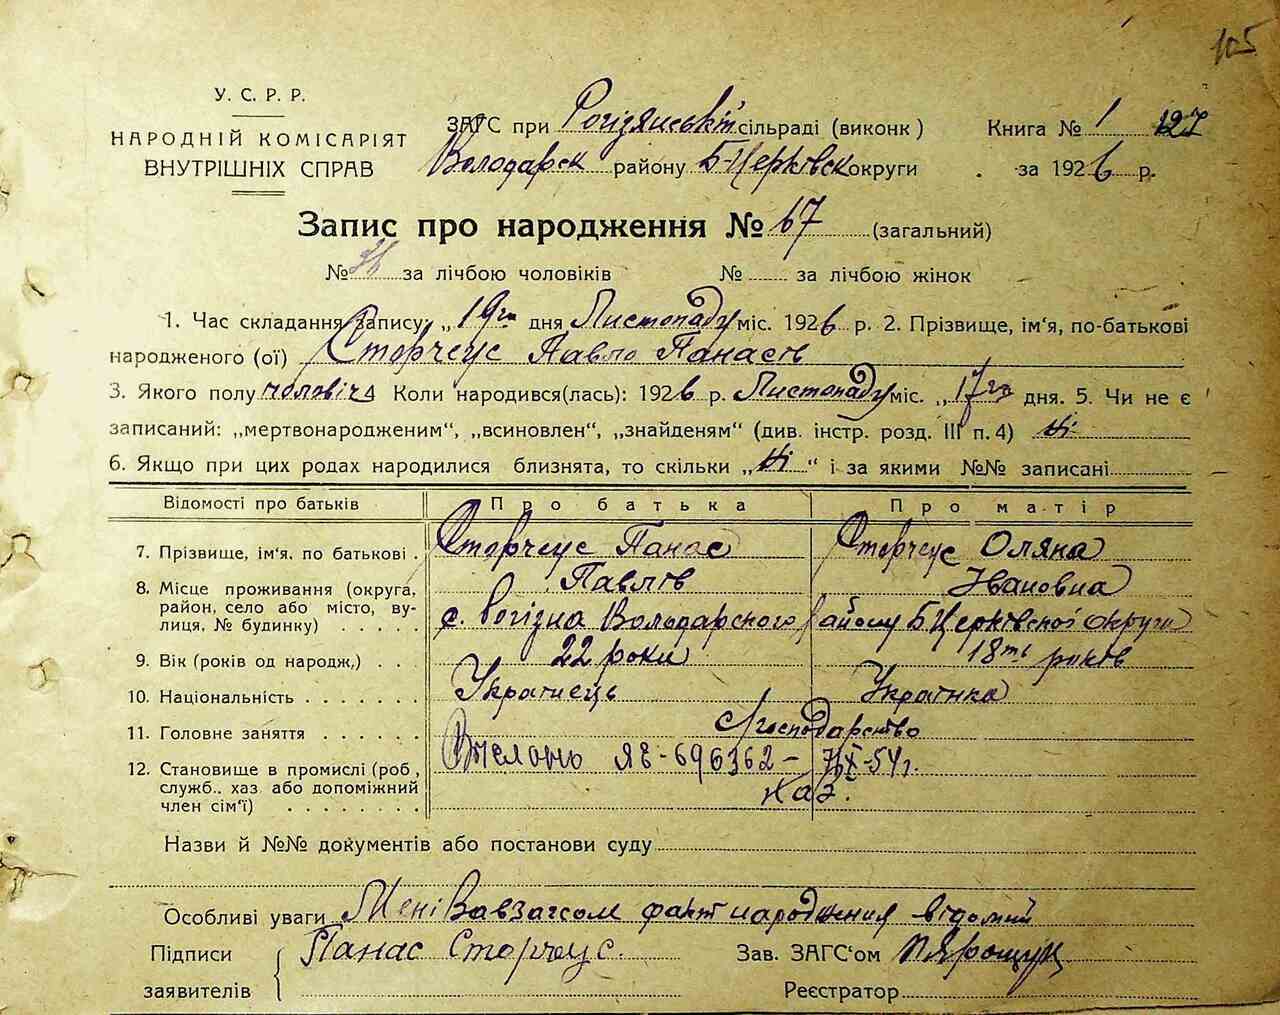 105
У. С. Р. Р.
НАРОДНІЙ КОМІСАРІЯТ
ВНУТРІШНІХ СПРАВ
ЗАГС при Рогізянській сільраді (виконк.) Книга № 1 127
Володарск району Б-Церківск округи за 1926 р.
Запис про народження № 67 (загальний)
№ за лічбою чоловіків № за лічбою жінок
1. Час складання запису: „19го дня Листопаду міс. 1926 р. 2. Прізвище, ім'я, по-батькові
народженого (ої) Сторчеус Павло Панасів
3. Якого полу чоловіч 4 Коли народився(лась): 1926 р. Листопаду міс. „17го дня. 5. Чи не є
записаний: „мертвонародженим“, „всиновлен“, „знайденям“ (див. інстр. розд. III п. 4) Ні
6. Якщо при цих родах народилися близнята, то скільки „Ні“ і за якими №№ записані
Відомості про батьків Про батька Про матір
7. Прізвище, ім'я, по батькові . Сторчеус Панас Сторчеус Оляна
Павлів Івановна
8. Місце проживання (округа, район, село або місто, ву-
лиця, № будинку) . . . . . с. Рогізна Володарского району Б Церківской округи
9. Вік (років од народж,) . . 22 роки 18ть років
10. Національність . . . . . . . Українець Українка
11. Головне заняття . . . . . . с/господарство
12. Становище в промислі (роб, служб.. хаз або допоміжний
член сім'ї) . . . . . . . . ЯЕ-696362 — -54г.
хаз.
Назви й №№ документів або постанови суду
Особливі уваги Мені Завзагсом факт народження відомий
Підписи Панас Сторчеус. Зав. ЗАГС'ом П Ярощук
заявителів Реєстратор